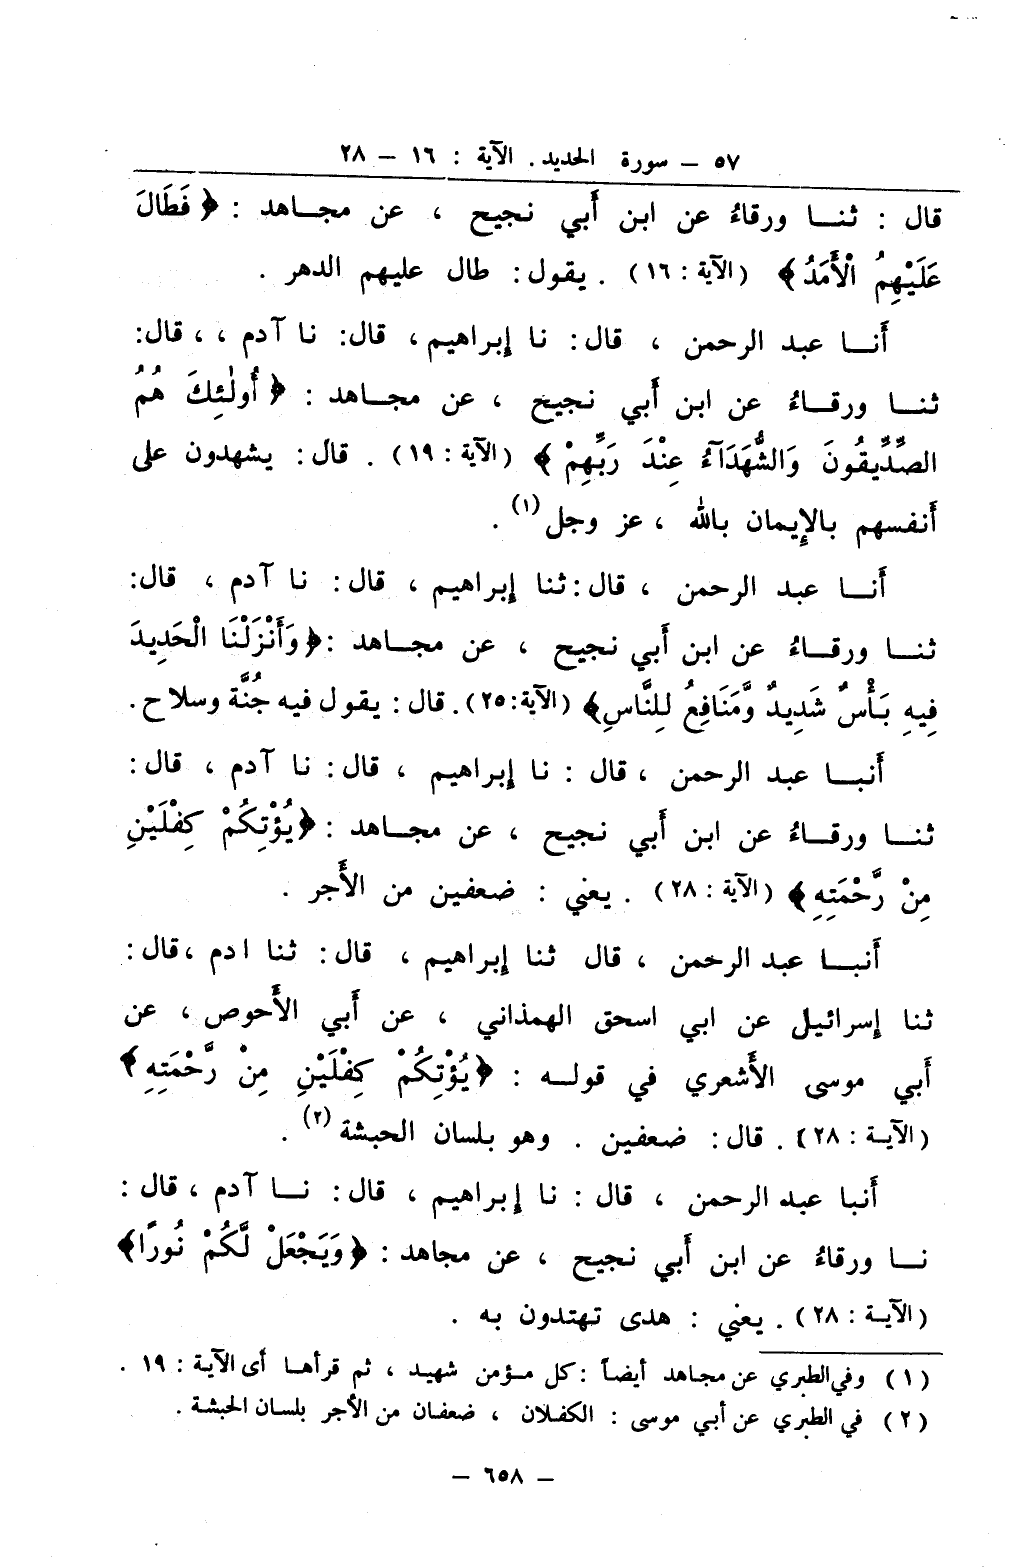 ٥٧ – سورة الحديد . الآية : ١٦ – ٢٨
قال : ثنـــا ورقاءُ عن ابن أَبي نجيح ، عن مجـاهد : ﴿ فَطَالَ
عَلَيْهِمُ الْأَمَدُ ﴾ (الآية : ١٦) . يقول: طال عليهم الدهر .
أَنـــا عبد الرحمن ، قال: نا إبراهيم، قال: نا آدم ، ، قال:
ثنـــا ورقــاءُ عن ابن أَبي نجيح ، عن مجـاهد : ﴿ أُولٰئِكَ هُمُ
الصِّدِّيقُونَ وَالشُّهَدَآءُ عِنْدَ رَبِّهِمْ ﴾ (الآية : ١٩) . قال: يشهدون على
أَنفسهم بالإيمان بالله ، عز وجل (١) .
أَنـــا عبد الرحمن ، قال: ثنا إبراهيم ، قال: نا آدم ، قال:
ثنـــا ورقــاءُ عن ابن أَبي نجيح ، عن مجـاهد :﴿ وَأَنْزَلْنَا الْحَدِيدَ
فِيهِ بَأْسٌ شَدِيدٌ وَّمَنَافِعُ لِلنَّاسِ ﴾ (الآية: ٢٥). قال: يقول فيه جُنَّة وسلاح.
أَنبـــا عبد الرحمن ، قال : نا إبراهيم ، قال: نا آدم ، قال:
ثنـــا ورقــاءُ عن ابن أَبي نجيح ، عن مجـاهد : ﴿ يُؤْتِكُمْ كِفْلَيْنِ
مِنْ رَّحْمَتِهِ ﴾ (الآية : ٢٨) . يعني : ضعفين من الأَجر .
أَنبـــا عبد الرحمن ، قال ثنا إبراهيم ، قال: ثنا ادم ، قال:
ثنا إسرائيل عن ابي اسحق الهمذاني ، عن أَبي الأَحوص ، عن
أَبي موسى الأَشعري في قولــه : ﴿ يُؤْتِكُمْ كِفْلَيْنِ مِنْ رَّحْمَتِهِ ﴾
(الآيـة : ٢٨) . قال: ضعفين . وهو بلسان الحبشة (٢) .
أَنبا عبد الرحمن ، قال : نا إبراهيم ، قال: نــا آدم ، قال :
نـــا ورقاءُ عن ابن أَبي نجيح ، عن مجاهد : ﴿ وَيَجْعَلْ لَّكُمْ نُورًا ﴾
(الآيـة : ٢٨) . يعني : هدى تهتدون به .
(١) وفي الطبري عن مجاهد أيضاً : كل مؤمن شهيد ، ثم قرأها أى الآية : ١٩ .
(٢) في الطبري عن أبي موسى : الكفلان ، ضعفان من الأجر بلسان الحبشة .
– ٦٥٨ –